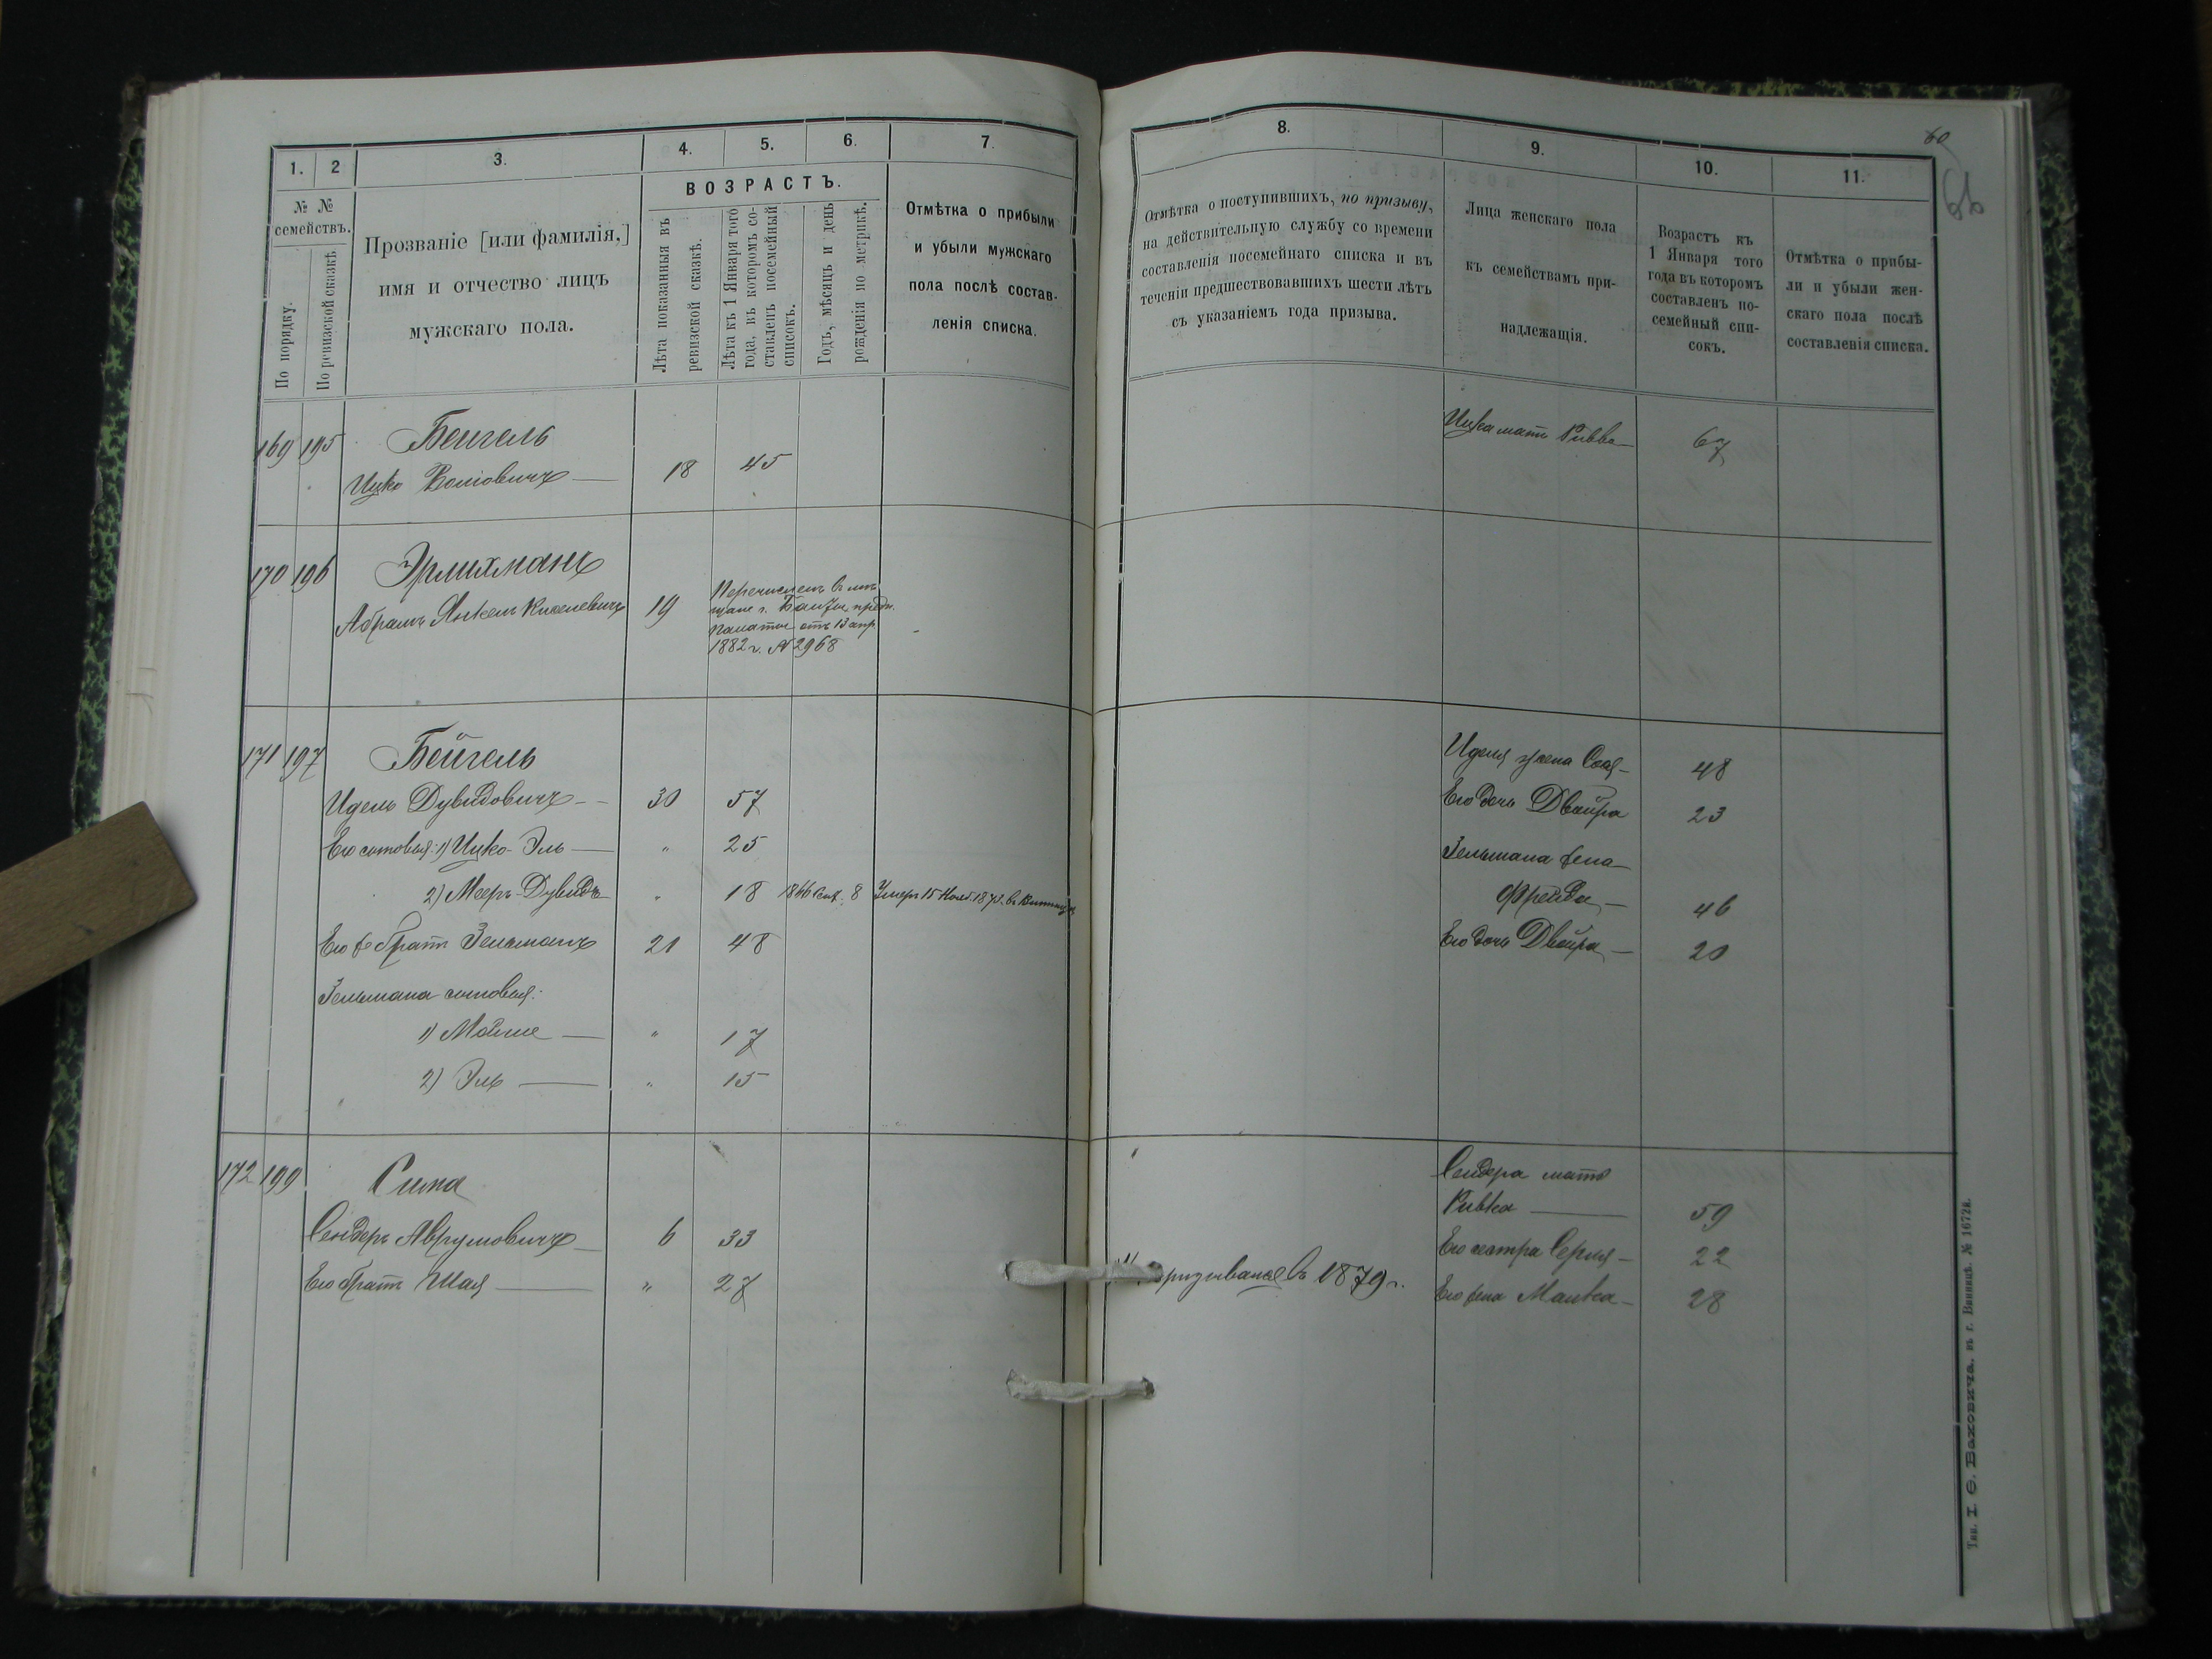 1. 2 3. 4. 5. 6. 7.
№ №
семействъ.
По порядку.
По ревизской сказкѣ.
Прозваніе [или фамилія,]
имя и отчество лицъ
мужскаго пола.
ВОЗРАСТЪ.
Лѣта показанныя въ
ревизской сказкѣ.
Лѣта къ 1 Января того
года, въ которомъ со-
ставленъ посемейный
списокъ.
Годъ, мѣсяцъ и день
рожденія по метрикѣ.
Отмѣтка о прибыли
и убыли мужскаго
пола послѣ состав-
ленія списка.
169 195 Бейгель
Ицко Волковичъ 18 45
170 196 Эрлихманъ
Абрамъ Янкель Киселевичъ 19
Перечисленъ в мѣ-
щане г. Балты, предп.
Палаты отъ 13 апр.
1882 г. № 2968
171 197 Бейгель
Идель Дувидовичъ 30 57
Его сыновья: 1) Ицко-Эль " 25
2) Мееръ-Дувидъ " 18 1866 8 Умеръ 15 Нояб. 1875.
Его же братъ Зельманъ 21 48
Зельмана сыновья:
1) Мойше " 17
2) Эль " 15
172 199 Сима
Сендеръ Аврумовичъ 6 33
Его братъ Шая " 27
60
8. 9. 10. 11.
Отмѣтка о поступившихъ, по призыву,
на дѣйствительную службу со времени
составленія посемейнаго списка и въ
теченіи предшествовавшихъ шести лѣтъ
съ указаніемъ года призыва.
Лица женскаго пола
къ семействамъ при-
надлежащія.
Возрастъ къ
1 Января того
года въ которомъ
составленъ по-
семейный спи-
сокъ.
Отмѣтка о прибы-
ли и убыли жен-
скаго пола послѣ
составленія списка.
Ицка мать Ривка 67
Иделя жена Сося 48
Его дочь Двойра 23
Зельмана жена
Фрейда 46
Его дочь Двойра 20
Сендера мать
Ривка 59
Его сестра Серля 22
призывался въ 1879 г. Его жена Малка 28
Тип. І. Ѳ. Баховича, въ г. Винницѣ. № 1672а.